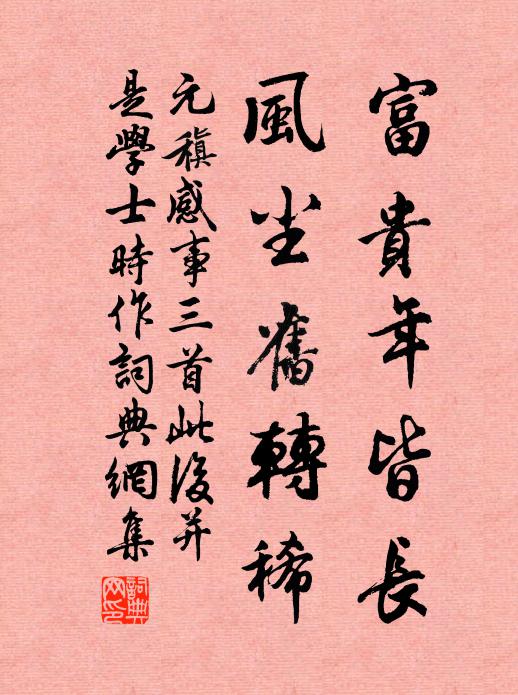 富貴年皆長
風塵舊轉稀
元稹感事三首此後并
是學士時作詞典網集
詞典网印